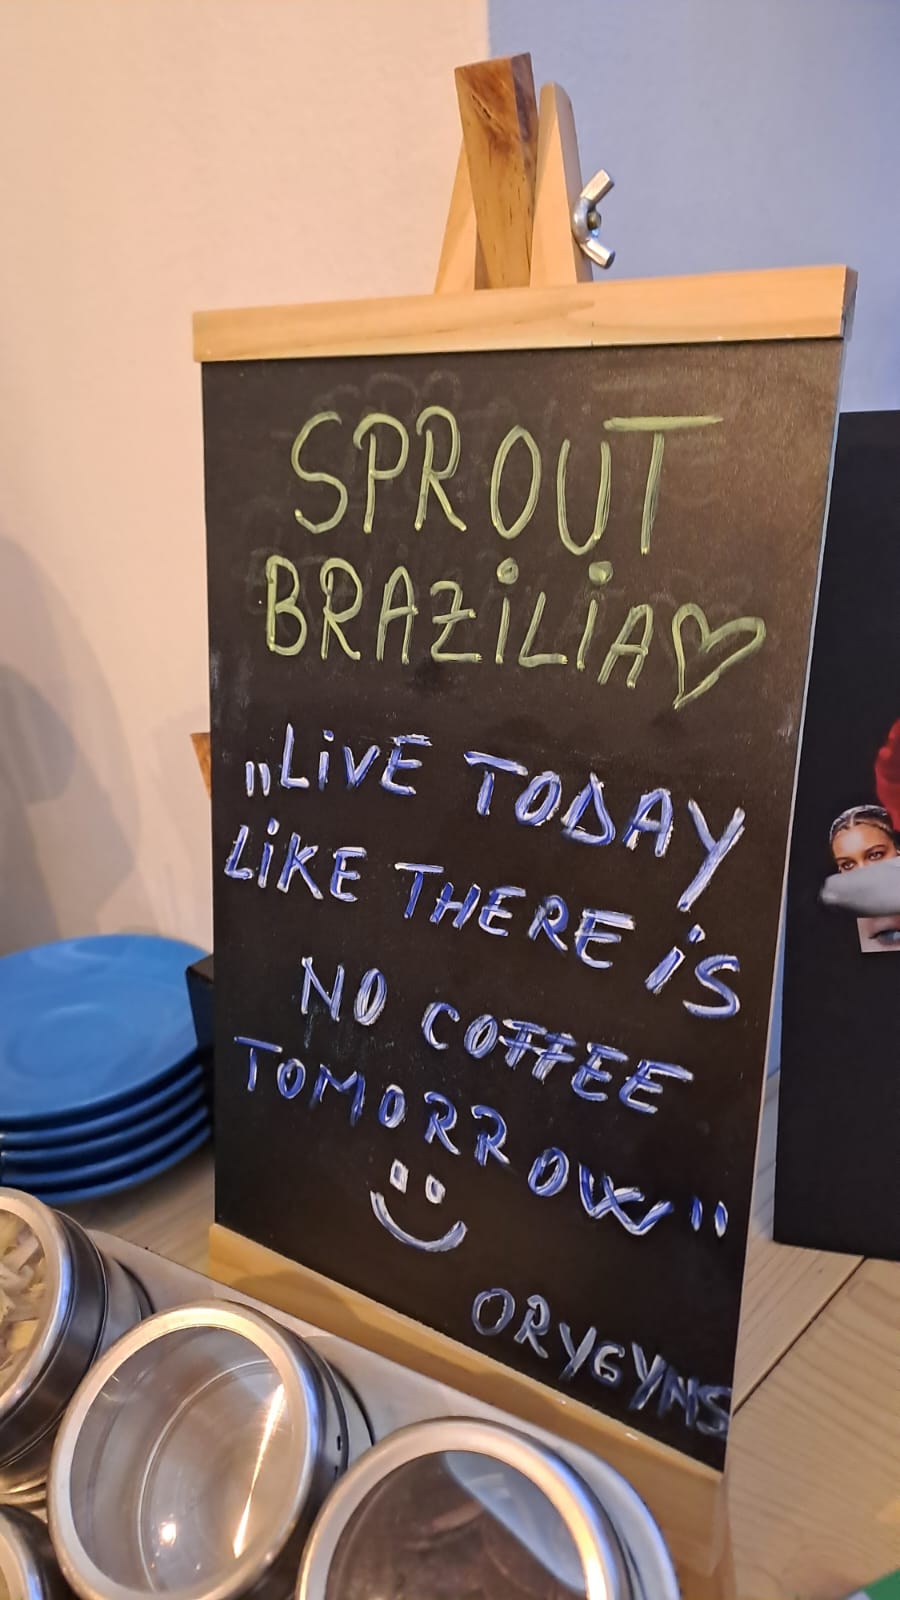 SPROUT
BRAZiLiA♡
„LiVE TODAY
LiKE THERE iS
NO COFFEE
TOMORROW"
ORYGYNS